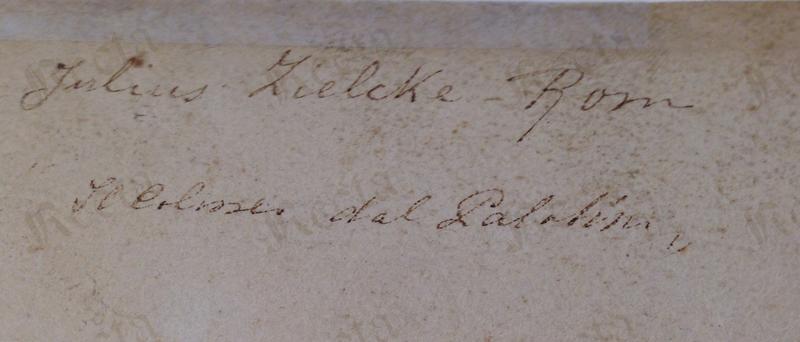 Julius Zielcke - Rom
Il Colosseo dal Palatino